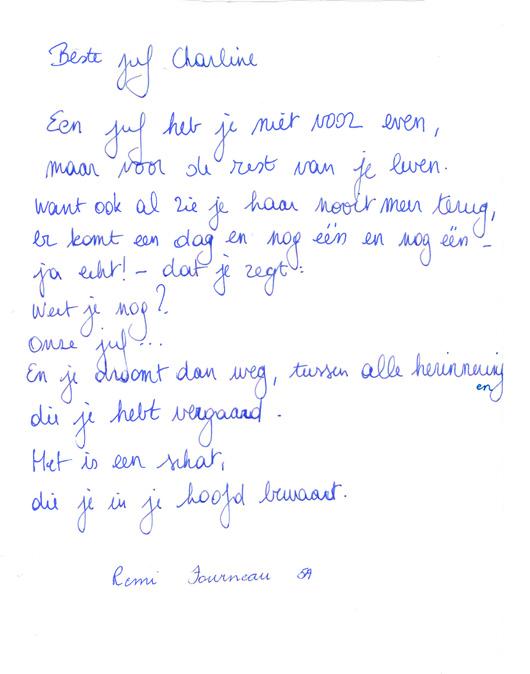 Beste juf Charline
Een juf heb je niet voor even,
maar voor de rest van je leven.
Want ook al zie je haar nooit meer terug,
er komt een dag en nog één en nog één -
ja echt! - dat je zegt:
Weet je nog?
Onze juf...
En je droomt dan weg, tussen alle herinnering
en
die je hebt vergaard.
Het is een schat,
die je in je hoofd bewaart.
Remi Fourneau 5A